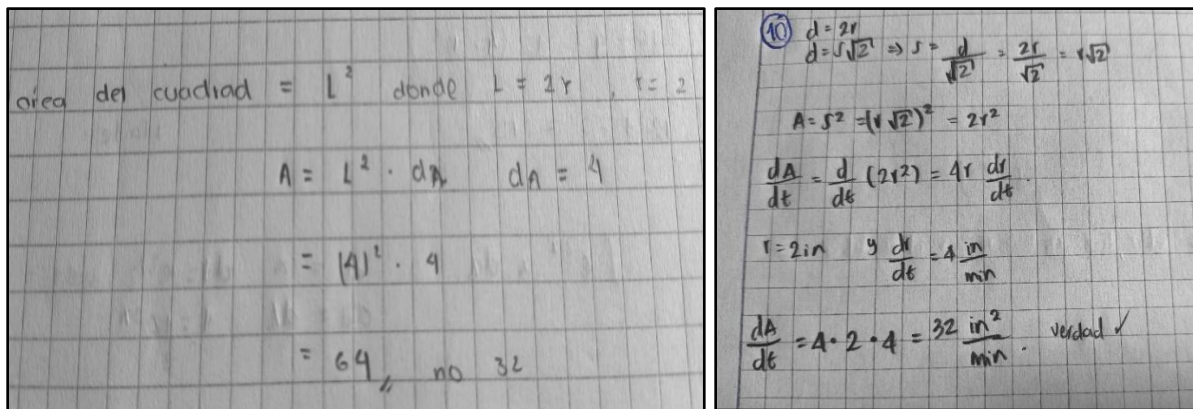 area del cuadrad = L² donde L = 2r , r = 2
A = L² · dA dA = 4
= (4)² · 4
= 64,, no 32
10 d = 2r
d = s√2 ⇒ s = d/√2 = 2r/√2 = r√2
A = s² = (r√2)² = 2r²
dA/dt = d/dt (2r²) = 4r dr/dt .
r = 2in y dr/dt = 4 in/min
dA/dt = 4 · 2 · 4 = 32 in²/min . verdad ✓